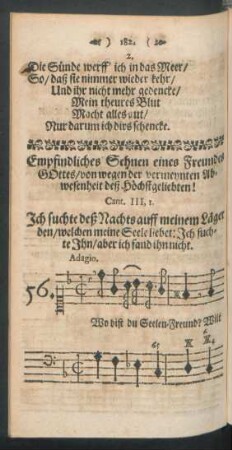 ) 182. (
2.
Die Sünde werff ich in das Meer/
So/ daß sie nimmer wieder kehr/
Und ihr nicht mehr gedencke/
Mein theures Blut
Macht alles gut/
Nur darum ich dirs schencke.
Empfindliches Sehnen eines Freundes
GOttes/ von wegen der vermeynten Ab-
wesenheit deß Höchstgeliebten!
Cant. III, 1.
Ich suchte deß Nachts auff meinem Läger
den/ welchen meine Seele liebet: Ich such-
te Ihn/ aber ich fand ihn nicht.
Adagio.
56.
Wo bist du Seelen-Freund? Wilt